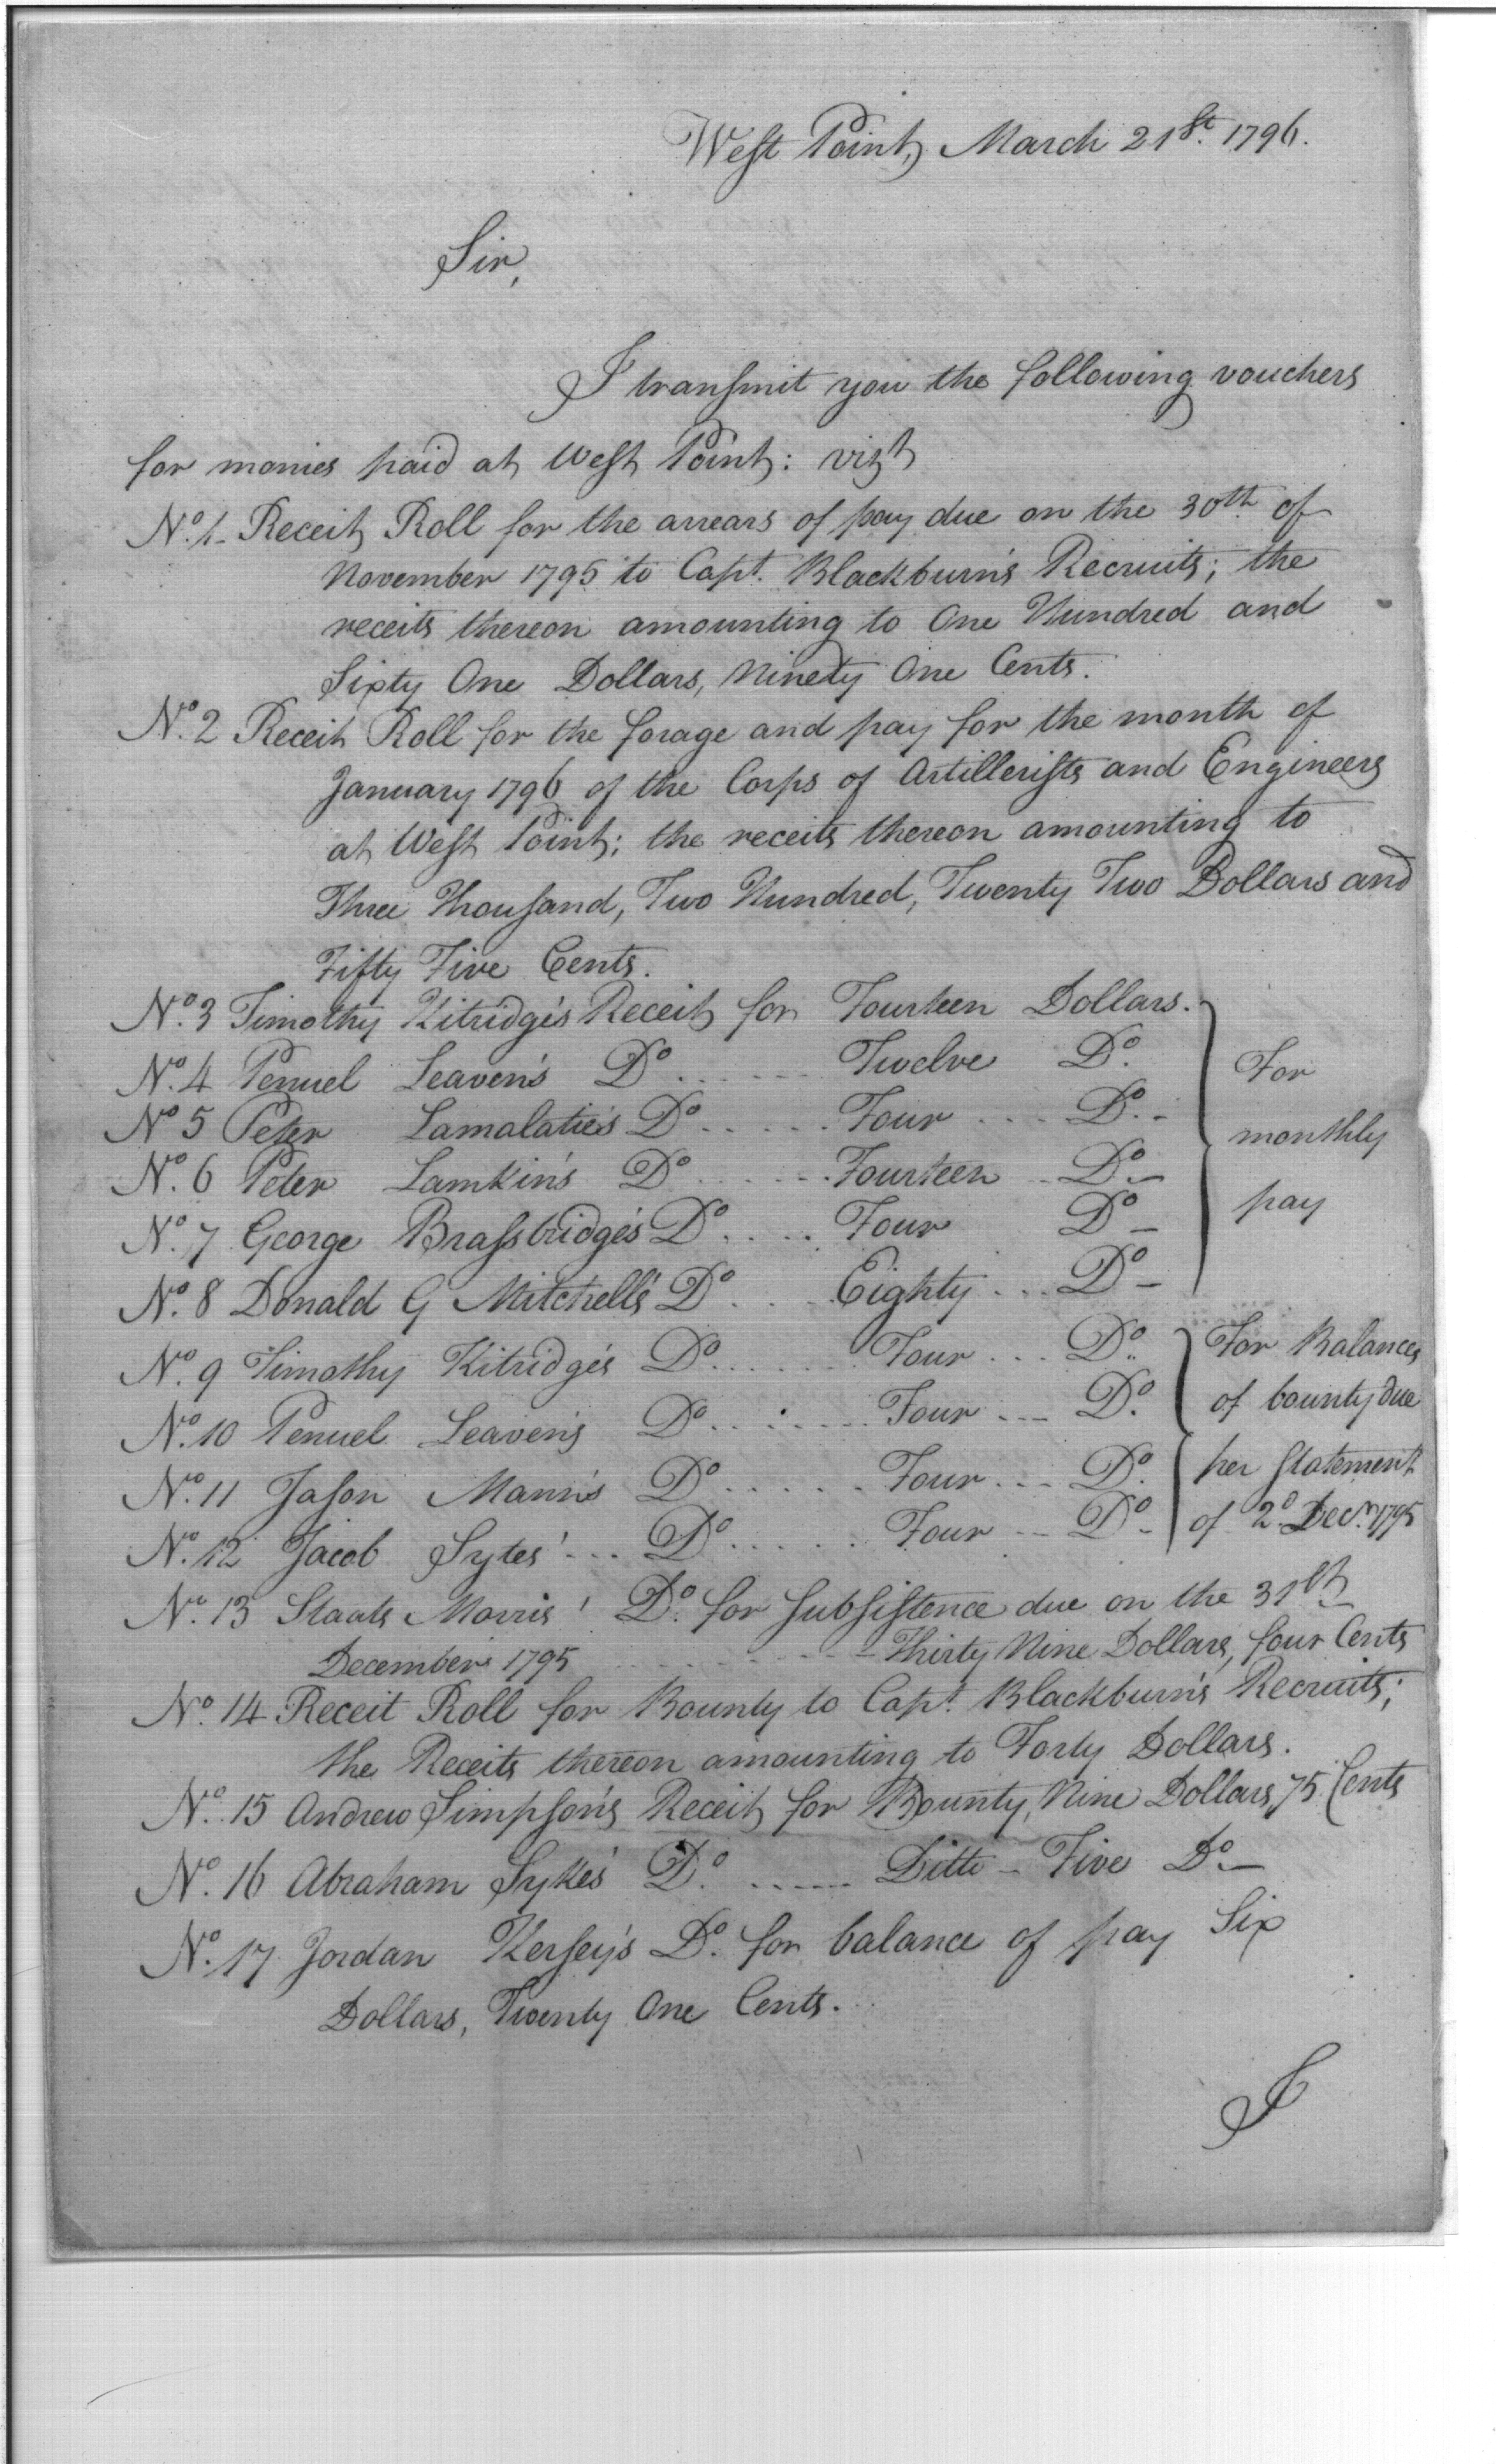 West Point, March 21st. 1796.
Sir,
I transmit you the following vouchers
for monies paid at West Point: vizt
No. 1. Receit Roll for the arrears of pay due on the 30th of
November 1795 to Capt. Blackburn's Recruits; the
receits thereon amounting to One Hundred and
Sixty One Dollars, Ninety One Cents.
No. 2 Receit Roll for the forage and pay for the month of
January 1796 of the Corps of Artillerists and Engineers
at West Point; the receits thereon amounting to
Three Thousand, Two Hundred, Twenty Two Dollars and
Fifty Five Cents.
No. 3 Timothy Kitridge's Receit for Fourteen Dollars.
No. 4 Penuel Leaven's Do. ...... Twelve Do. For
No 5 Peter Lamalatie's Do ...... Four .... Do. - monthly
No. 6 Peter Lamkin's Do ...... Fourteen .. Do. - pay
No. 7 George Brassbridge's Do ..... Four Do -
No. 8 Donald G Mitchell's Do .... Eighty ... Do -
No. 9 Timothy Kitridge's Do ...... Four ... Do. For Balances
No. 10 Penuel Leaven's Do ...... Four --- Do. of bounty due
No. 11 Jason Mann's Do ...... Four ... Do. per statement
No. 12 Jacob Sytes' ... Do ...... Four -- Do - of 2d Decr. 1795
No. 13 Staats Morris' Do. for subsistence due on the 31st
December 1795 - - - - - - Thirty Nine Dollars, four Cents
No. 14 Receit Roll for Bounty to Capt. Blackburn's Recruits;
the Receits thereon amounting to Forty Dollars.
No. 15 Andrew Simpson's Receit for Bounty, Nine Dollars, 75 Cents
No. 16 Abraham Syke's Do. ------ Ditto - Five Do -
No. 17 Jordan Kersey's Do. for balance of pay Six
Dollars, Twenty One Cents.
I